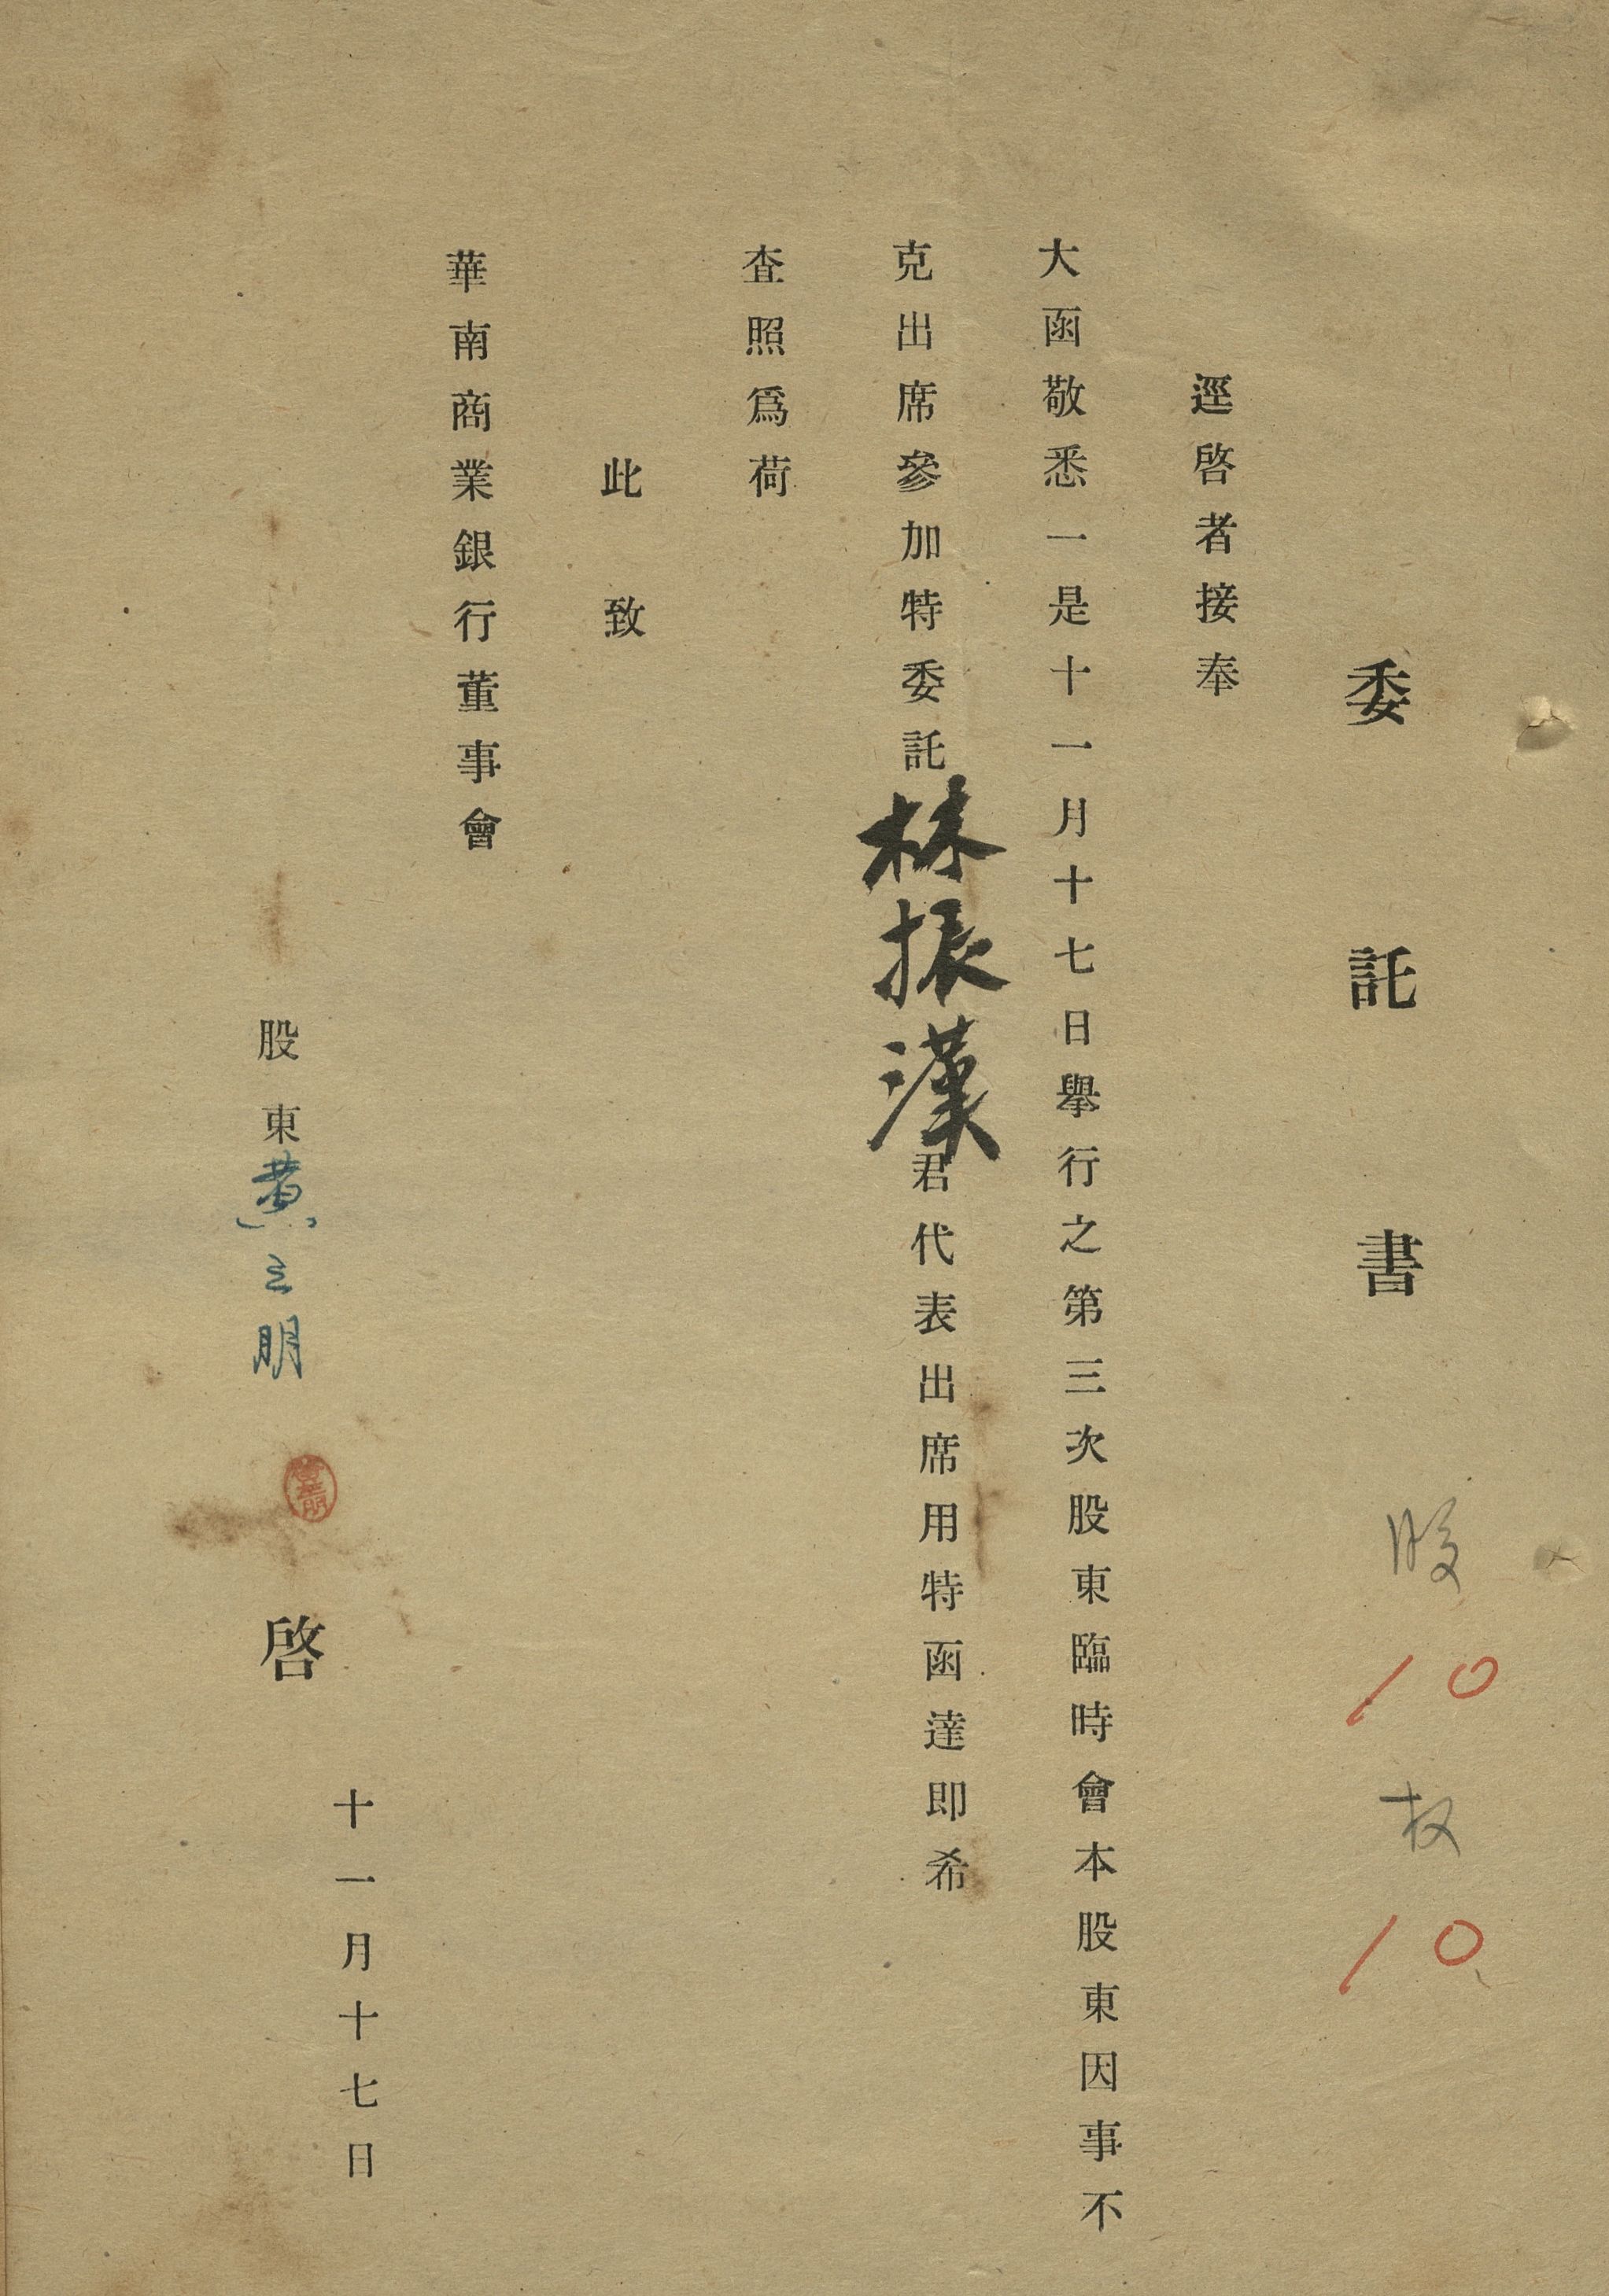 委託書
股 10 权 10
逕啓者接奉
大函敬悉一是十一月十七日舉行之第三次股東臨時會本股東因事不
克出席參加特委託林振漢君代表出席用特函達即希
査照爲荷
此致
華南商業銀行董事會
十一月十七日
股東黄立朋 啓